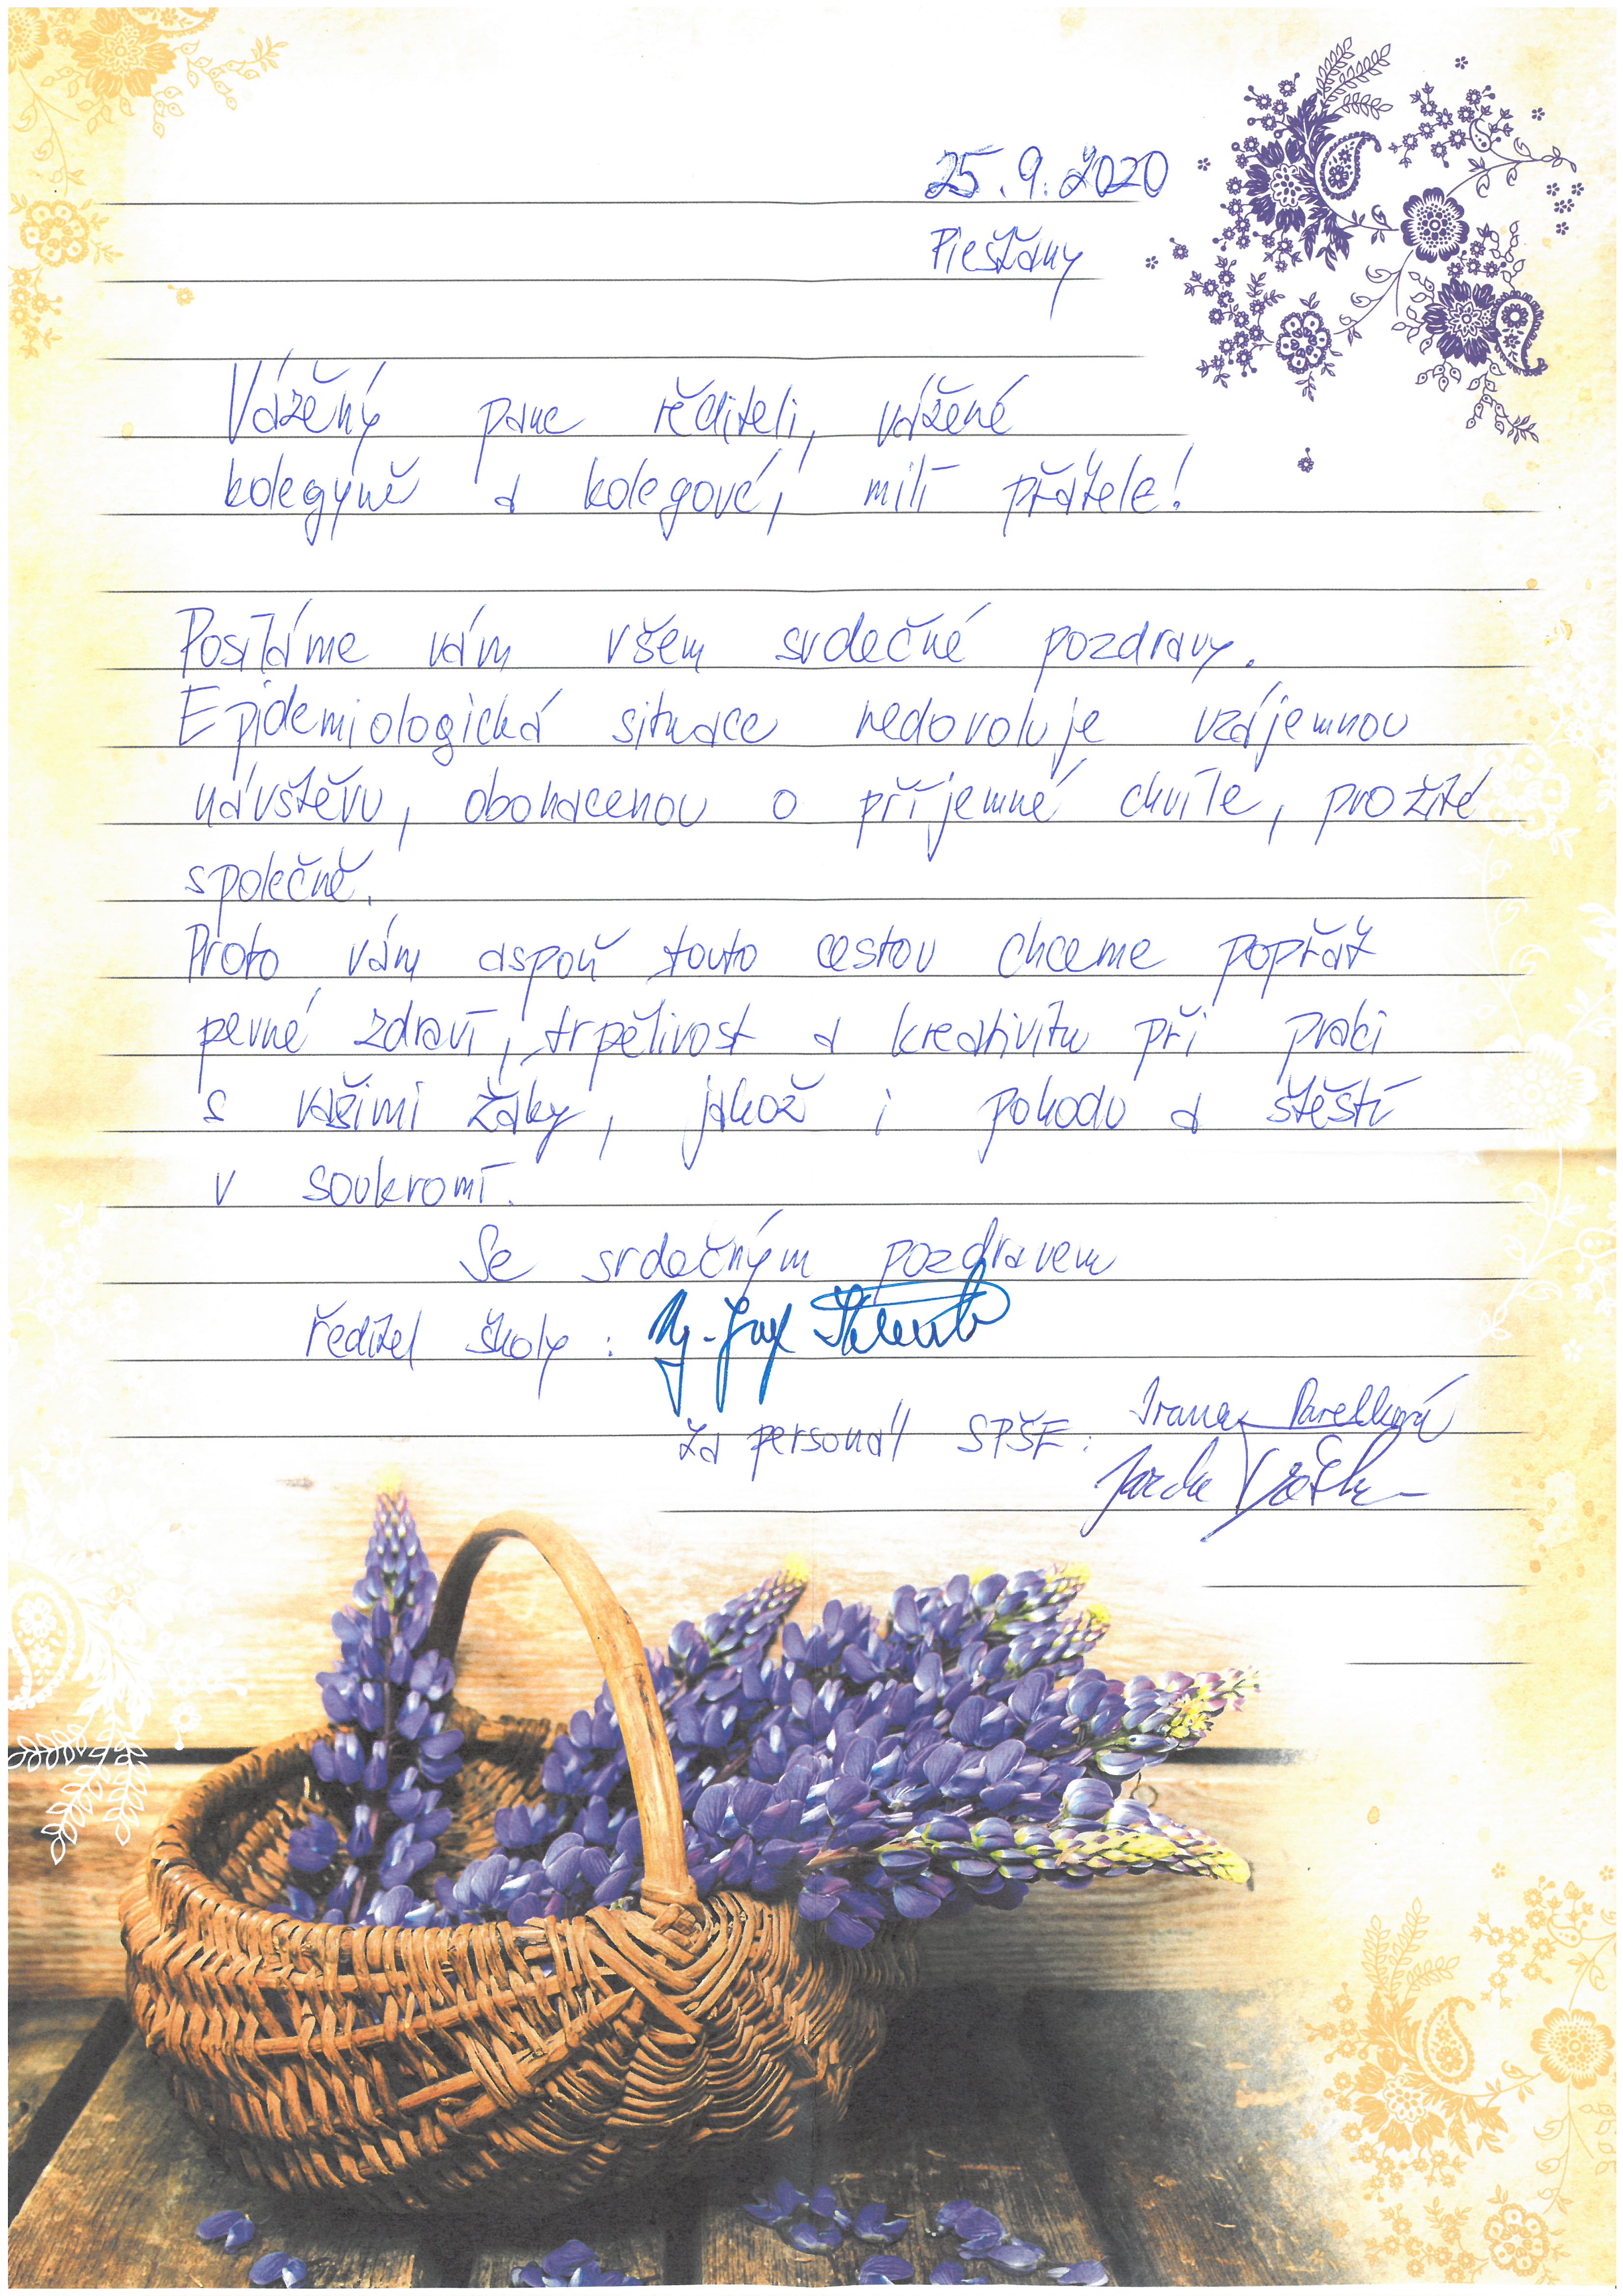 25.9.2020
Piešťany
Vážený pane řediteli, vážené
kolegyně a kolegové, milí přátele!
Posíláme vám všem srdečné pozdravy.
Epidemiologická situace nedovoluje vzájemnou
návštěvu, obohacenou o příjemné chvíle, prožité
společně.
Proto vám aspoň touto cestou chceme popřát
pevné zdraví, trpělivost a kreativitu při práci
s vašimi žáky, jakož i pohodu a štěstí
v soukromí.
Se srdečným pozdravem
ředitel školy :
Za personál SPŠE: Ivana Pavelková